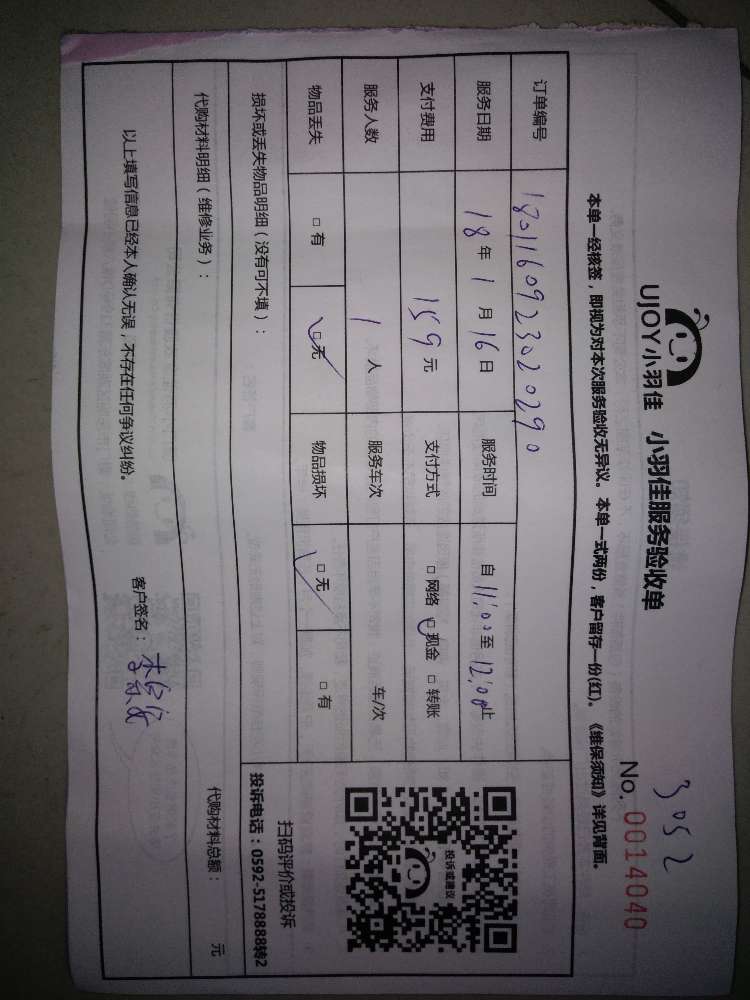 3052
UJOY小羽佳 小羽佳服务验收单
No. 0014040
本单一经核签，即视为对本次服务验收无异议。本单一式两份，客户留存一份(红)。《维保须知》详见背面。
订单编号 1801160923020290
服务日期 18 年 1 月 16 日 服务时间 自 11:00 至 12:00 止
支付费用 159 元 支付方式 □ 网络 □ 现金 □ 转账
服务人数 1 人 服务车次 车/次
物品丢失 □ 有 □ 无 物品损坏 □ 无 □ 有
投诉或建议
扫码评价或投诉
投诉电话：0592-5178888转2
损坏或丢失物品明细（没有可不填）：
代购材料明细（维修业务）： 代购材料总额： 元
以上填写信息已经本人确认无误，不存在任何争议纠纷。 客户签名：